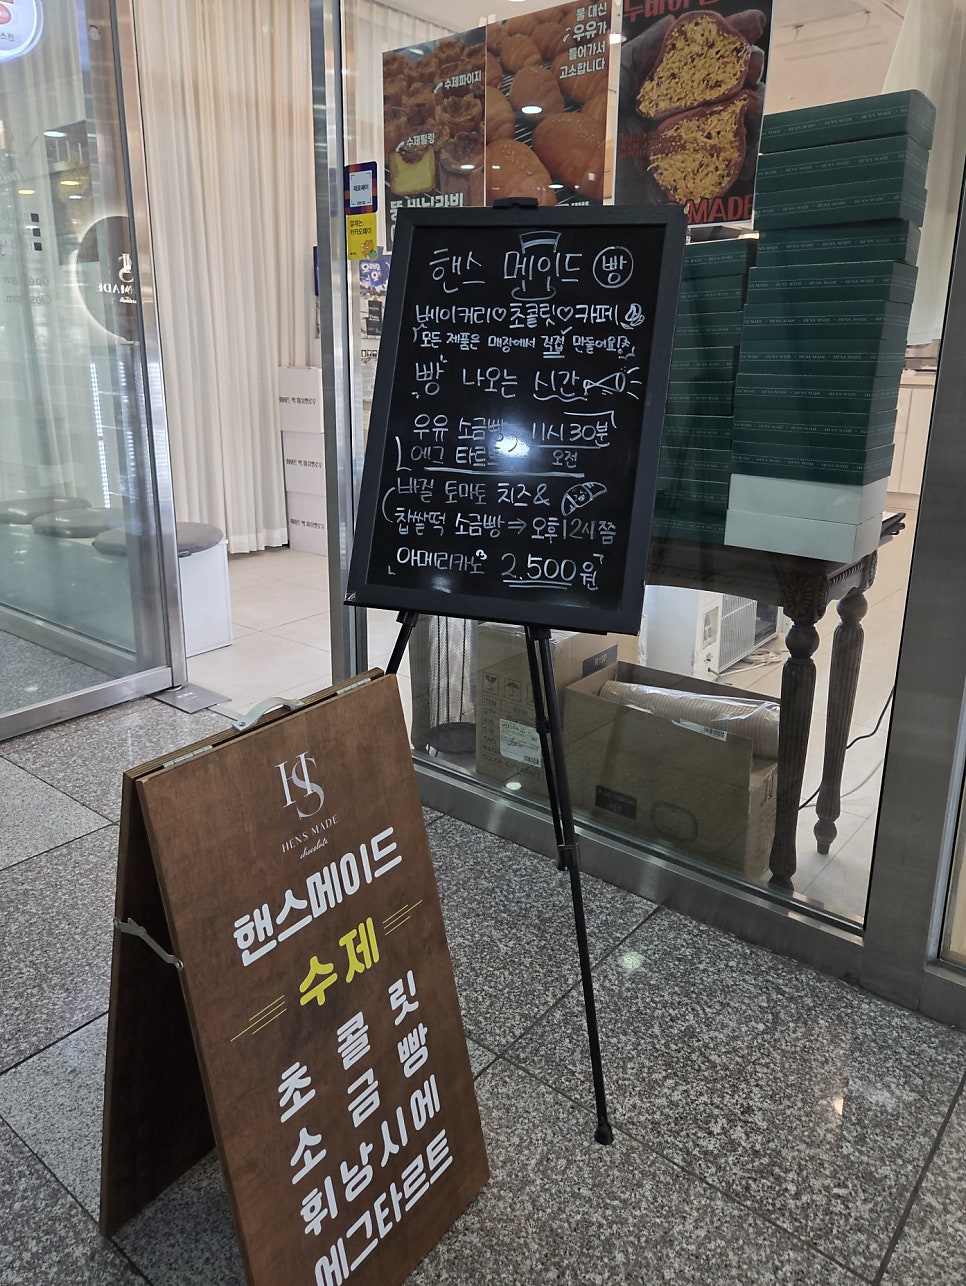 물 대신
우유가
들어가서
고소합니다
수제파이지
수제필링
MADE
제로페이
결제는,
카카오페이
핸스 메이드 빵
베이커리♡초콜릿♡카페
모든 제품은 매장에서 직접 만들어요!
빵 나오는 시간
우유 소금빵, 11시 30분
에그 타르트 오전
바질 토마토 치즈 &
찹쌀떡 소금빵 ⇒ 오후 12시쯤
아메리카노 2.500원
HENS MADE
HS
HENS MADE
chocolate
핸스메이드
수제
초콜릿
소금빵
휘낭시에
에그타르트